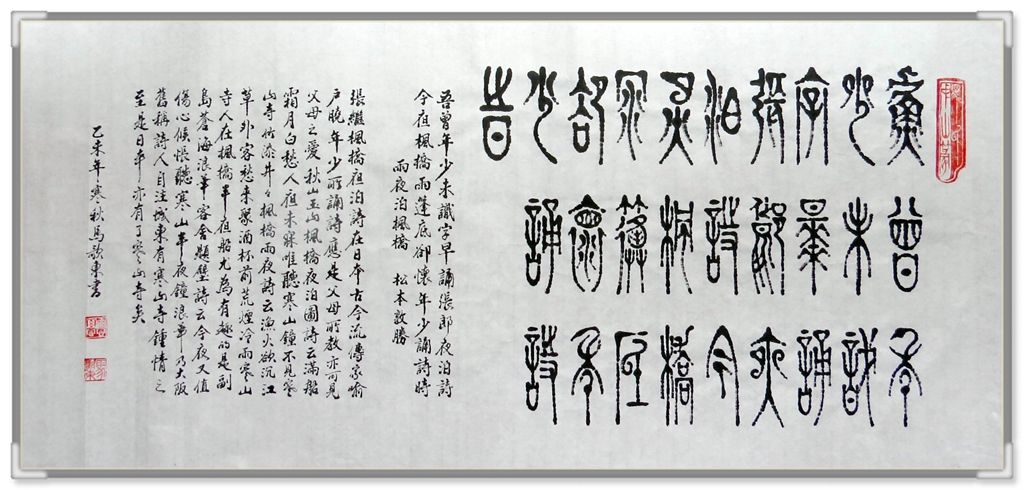 吾曾年
少未識
字早誦
張郎夜
泊詩今
夜楓橋
雨篷底
卻懷年
少誦詩
時
吾曾年少未識字早誦張郎夜泊詩
今夜楓橋雨篷底卻懷年少誦詩時
雨夜泊楓橋 松本敦勝
張繼楓橋夜泊詩在日本古今流傳家喻
戶曉年少所誦詩應是父母所教亦可見
父母云愛秋山玉山楓橋夜泊圖詩云滿船
霜月白愁人夜未寐唯聽寒山鐘不見寒
山寺竹添井々楓橋雨夜詩云漁火欲沉江
草外客愁來聚酒杯前荒煙冷雨寒山
寺人在楓橋半夜船尤為有趣的是副
島蒼海浪華客舍題壁詩云今夜又值
傷心候悵聽寒山半夜鐘浪華乃大阪
舊稱詩人自注城東有寒山寺鍾情之
至是日本亦有了寒山寺矣
乙未年寒秋馬歌東書